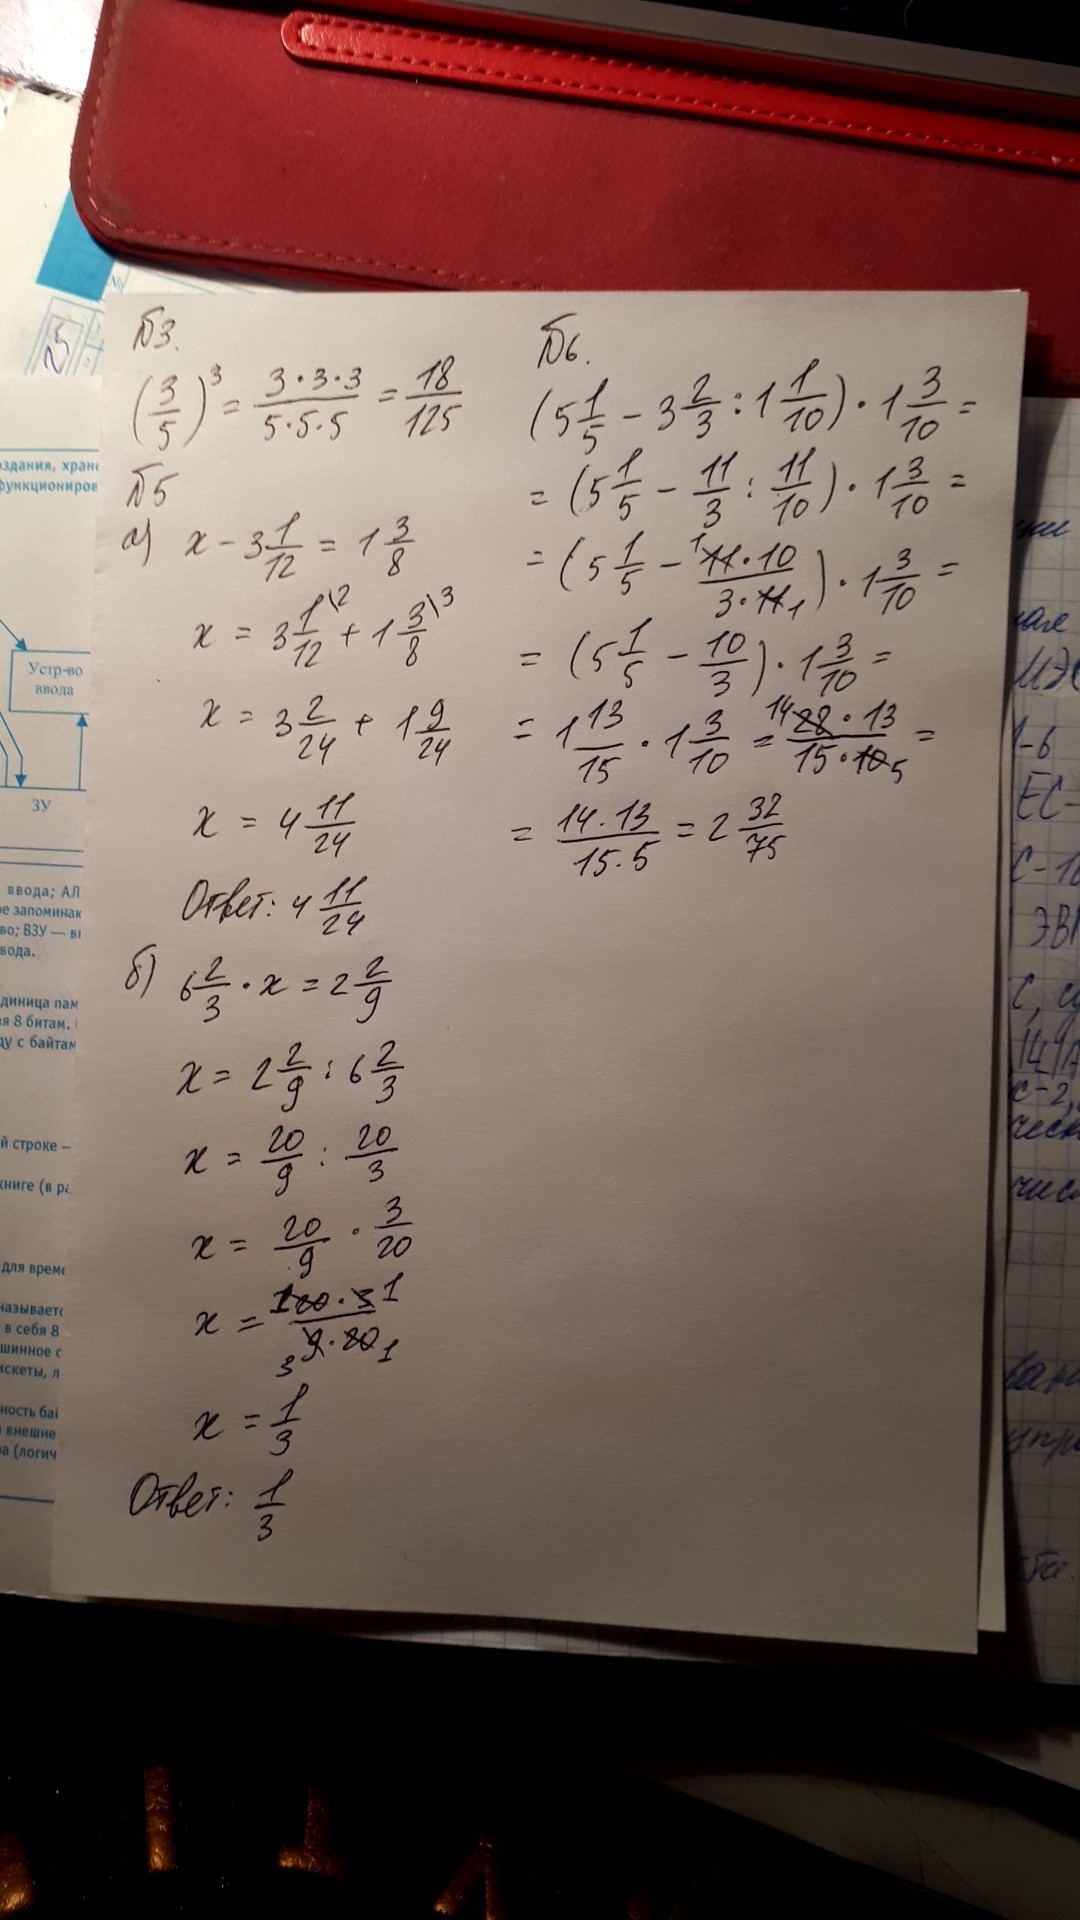 №3.
(3/5)³ = 3·3·3/5·5·5 = 18/125
№5
а) x - 3 1/12 = 1 3/8
x = 3 1\2/12 + 1 3\3/8
x = 3 2/24 + 1 9/24
x = 4 11/24
Ответ: 4 11/24
б) 6 2/3 · x = 2 2/9
x = 2 2/9 : 6 2/3
x = 20/9 : 20/3
x = 20/9 · 3/20
x = 1 20 · 3 1/3 9 · 20 1
x = 1/3
Ответ: 1/3
№6.
(5 1/5 - 3 2/3 : 1 1/10) · 1 3/10 =
= (5 1/5 - 11/3 : 11/10) · 1 3/10 =
= (5 1/5 - 1 11·10/3·11 1) · 1 3/10 =
= (5 1/5 - 10/3) · 1 3/10 =
= 1 13/15 · 1 3/10 = 14 28·13/15·10 5 =
= 14·13/15·5 = 2 32/75
Устр-во
ввода
ЗУ
ввода; АЛ
во; ВЗУ — в
вода.
диница пам
я 8 битам.
ду с байтам
й строке —
книге (в ра
для време
называетс
в себя 8
шинное с
искеты, л
ность бай
внешне
ра (логич
оздания, хран
функциониров
ЕС-
С-10
ЭВМ